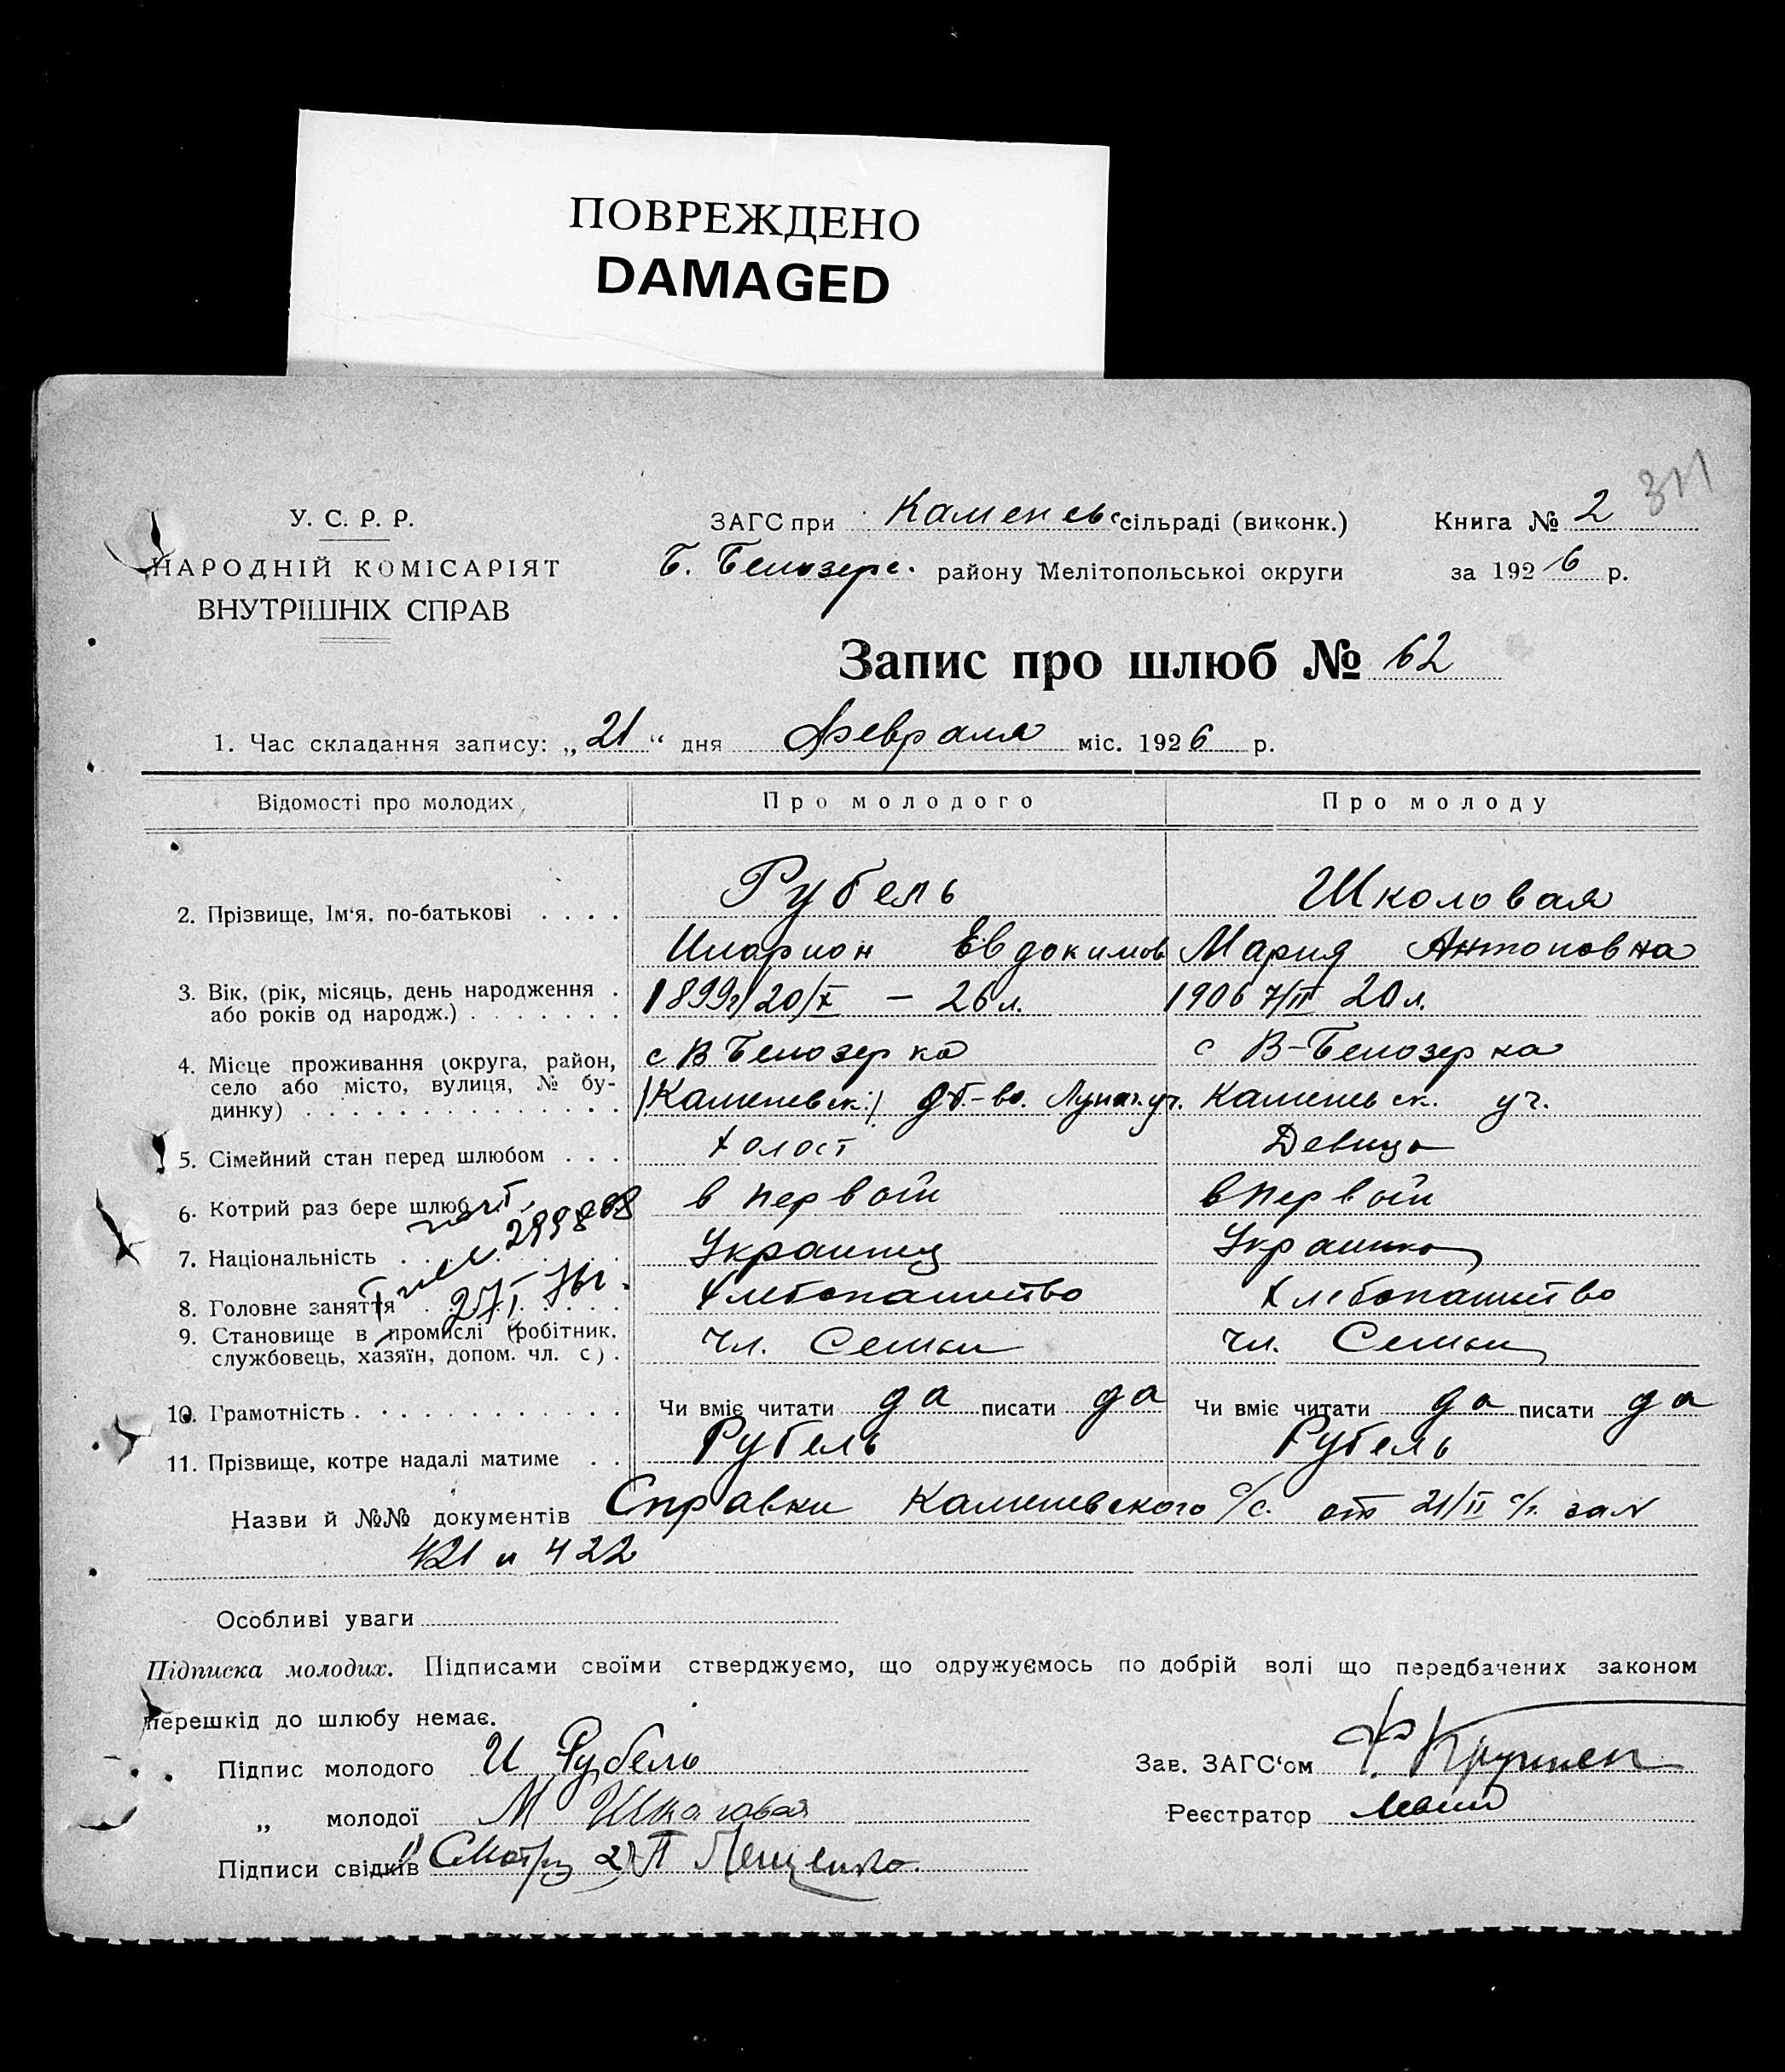 ПОВРЕЖДЕНО
DAMAGED
У. С. Р. Р.
НАРОДНІЙ КОМІСАРІЯТ
ВНУТРІШНІХ СПРАВ
ЗАГС при Каменевс сільраді (виконк.)
Б. Белозерс. району Мелітопольської округи
Книга № 2
за 1926 р.
Запис про шлюб № 62
1. Час складання запису: „21“ дня Февраля міс. 1926 р.
Відомості про молодих Про молодого Про молоду
2. Прізвище, Ім'я, по-батькові . . . . Рубель Школовая
Иларион Евдокимов Мария Антоновна
3. Вік, (рік, місяць, день народження . 1899г/20/X — 26 л. 1906 7/II 20 л.
або років од народж.) . . . . . . .
4. Місце проживання (округа, район, с В Белозерка с В-Белозерка
село або місто, вулиця, № бу-
динку) . . . . . . . . . . . . . . /Каменевск:/ уч. Каменевск. уч.
5. Сімейний стан перед шлюбом . . . Холост Девица
6. Котрий раз бере шлюб в первой в первой
7. Національність . . Украинец Украинка
299808
27/I 76г.
8. Головне заняття Хлебопашество Хлебопашество
9. Становище в промислі (робітник, чл. Семьи чл. Семьи
службовець, хазяїн, допом. чл. с) .
10. Грамотність . . . . . . . . . . . . Чи вміє читати да писати да Чи вміє читати да писати да
11. Прізвище, котре надалі матиме . . Рубель Рубель
Назви й №№ документів Справки Каменевского с/с. от 21/II с/г. за N
421 и 422
Особливі уваги
Підписка молодих. Підписами своїми стверджуємо, що одружуємось по добрій волі що передбачених законом
перешкід до шлюбу немає.
Підпис молодого И Рубель
Зав. ЗАГС'ом
„ молодої М Школовая
Реєстратор
Підписи свідків Лещенко.